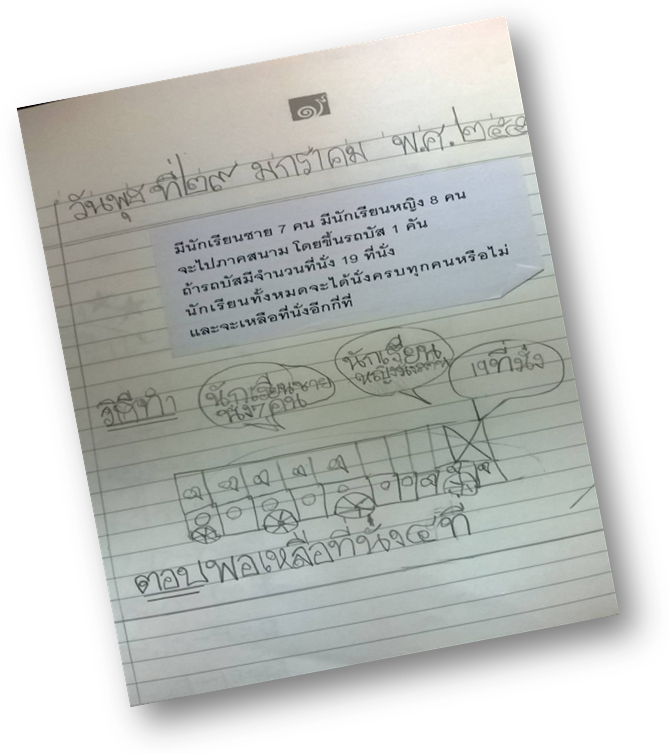 ๑๙
วันพุธ ที่ ๒๙ มกราคม พ.ศ. ๒๕๕
มีนักเรียนชาย 7 คน มีนักเรียนหญิง 8 คน
จะไปภาคสนาม โดยขึ้นรถบัส 1 คัน
ถ้ารถบัสมีจำนวนที่นั่ง 19 ที่นั่ง
นักเรียนทั้งหมดจะได้นั่งครบทุกคนหรือไม่
และจะเหลือที่นั่งอีกกี่ที่
วิธีทำ
นักเรียนชาย
นั่ง7คน
นักเรียน
หญิง
19ที่นั่ง
ตอบพอเหลือที่นั่ง๔ที่